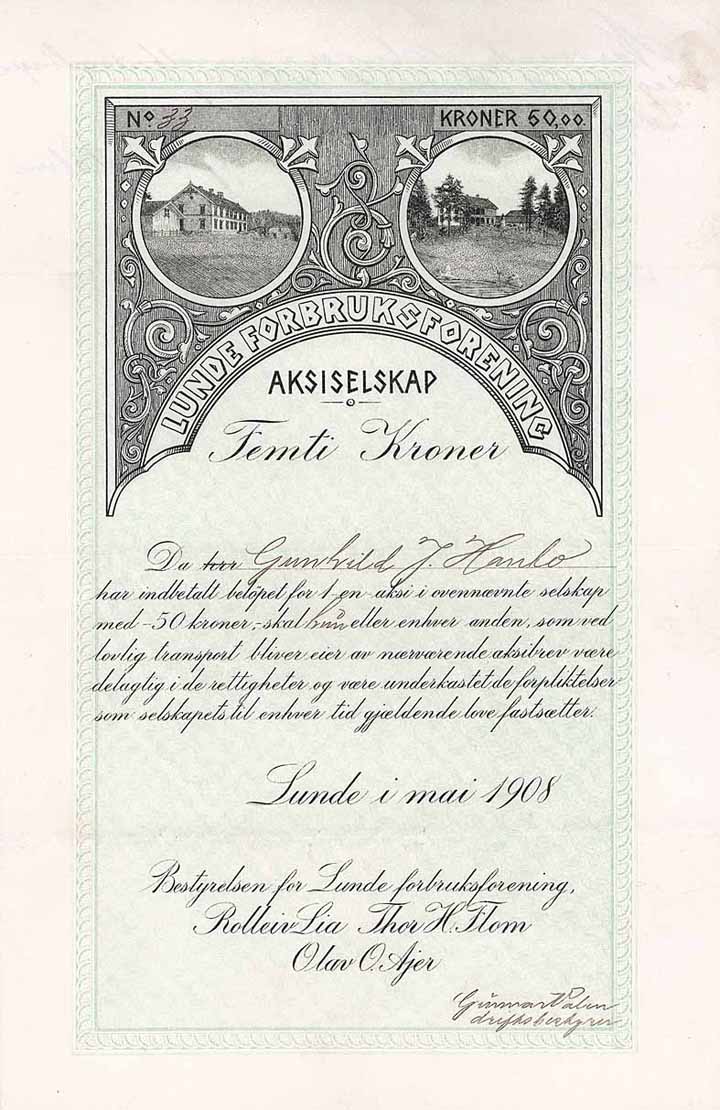 Nº 33
KRONER 50,00.
LUNDE FORBRUKSFORENING
AKSISELSKAP
Femti Kroner
Da herr Gunhild J. Hanto
har indbetalt beløpet for 1-en-aksi i ovennævnte selskap
med -50 kroner,- skal hun eller enhver anden, som ved
lovlig transport bliver eier av nærværende aksibrev være
delagtig i de rettigheter og være underkastet de forpliktelser
som selskapets til enhver tid gjældende love fastsætter.
Lunde i mai 1908
Bestyrelsen for Lunde forbruksforening,
Rolleiv Lia Thor H. Flom
Olav O. Ajer
Gunnar
driftsbestyrer